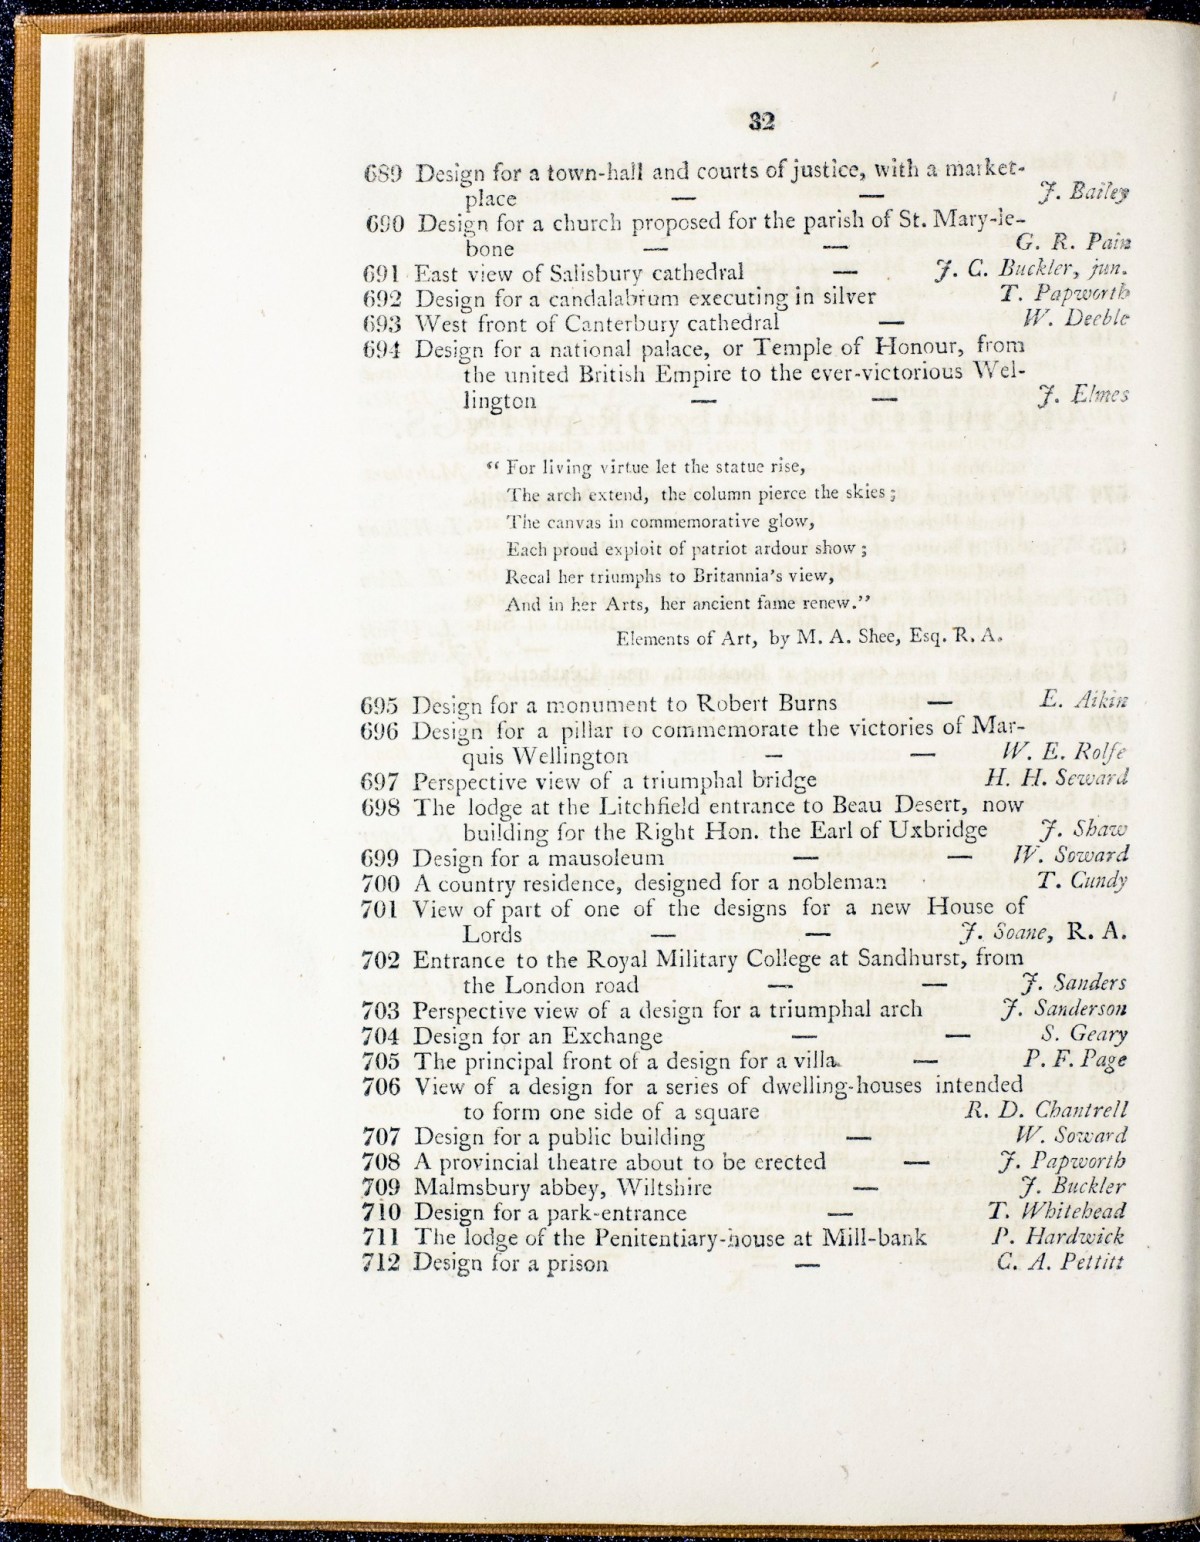 32
689 Design for a town-hall and courts of justice, with a market-
place — — J. Bailey
690 Design for a church proposed for the parish of St. Mary-le-
bone — — G. R. Pain
691 East view of Salisbury cathedral — J. C. Buckler, jun.
692 Design for a candalabrum executing in silver T. Papworth
693 West front of Canterbury cathedral — W. Deeble
694 Design for a national palace, or Temple of Honour, from
the united British Empire to the ever-victorious Wel-
lington — — J. Elmes
“ For living virtue let the statue rise,
The arch extend, the column pierce the skies ;
The canvas in commemorative glow,
Each proud exploit of patriot ardour show ;
Recal her triumphs to Britannia's view,
And in her Arts, her ancient fame renew.”
Elements of Art, by M. A. Shee, Esq. R. A.
695 Design for a monument to Robert Burns — E. Aikin
696 Design for a pillar to commemorate the victories of Mar-
quis Wellington — — W. E. Rolfe
697 Perspective view of a triumphal bridge H. H. Seward
698 The lodge at the Litchfield entrance to Beau Desert, now
building for the Right Hon. the Earl of Uxbridge J. Shaw
699 Design for a mausoleum — — W. Soward
700 A country residence, designed for a nobleman T. Cundy
701 View of part of one of the designs for a new House of
Lords — — J. Soane, R. A.
702 Entrance to the Royal Military College at Sandhurst, from
the London road — — J. Sanders
703 Perspective view of a design for a triumphal arch J. Sanderson
704 Design for an Exchange — — S. Geary
705 The principal front of a design for a villa — P. F. Page
706 View of a design for a series of dwelling-houses intended
to form one side of a square R. D. Chantrell
707 Design for a public building — W. Soward
708 A provincial theatre about to be erected — J. Papworth
709 Malmsbury abbey, Wiltshire — J. Buckler
710 Design for a park-entrance — T. Whitehead
711 The lodge of the Penitentiary-house at Mill-bank P. Hardwick
712 Design for a prison — C. A. Pettitt